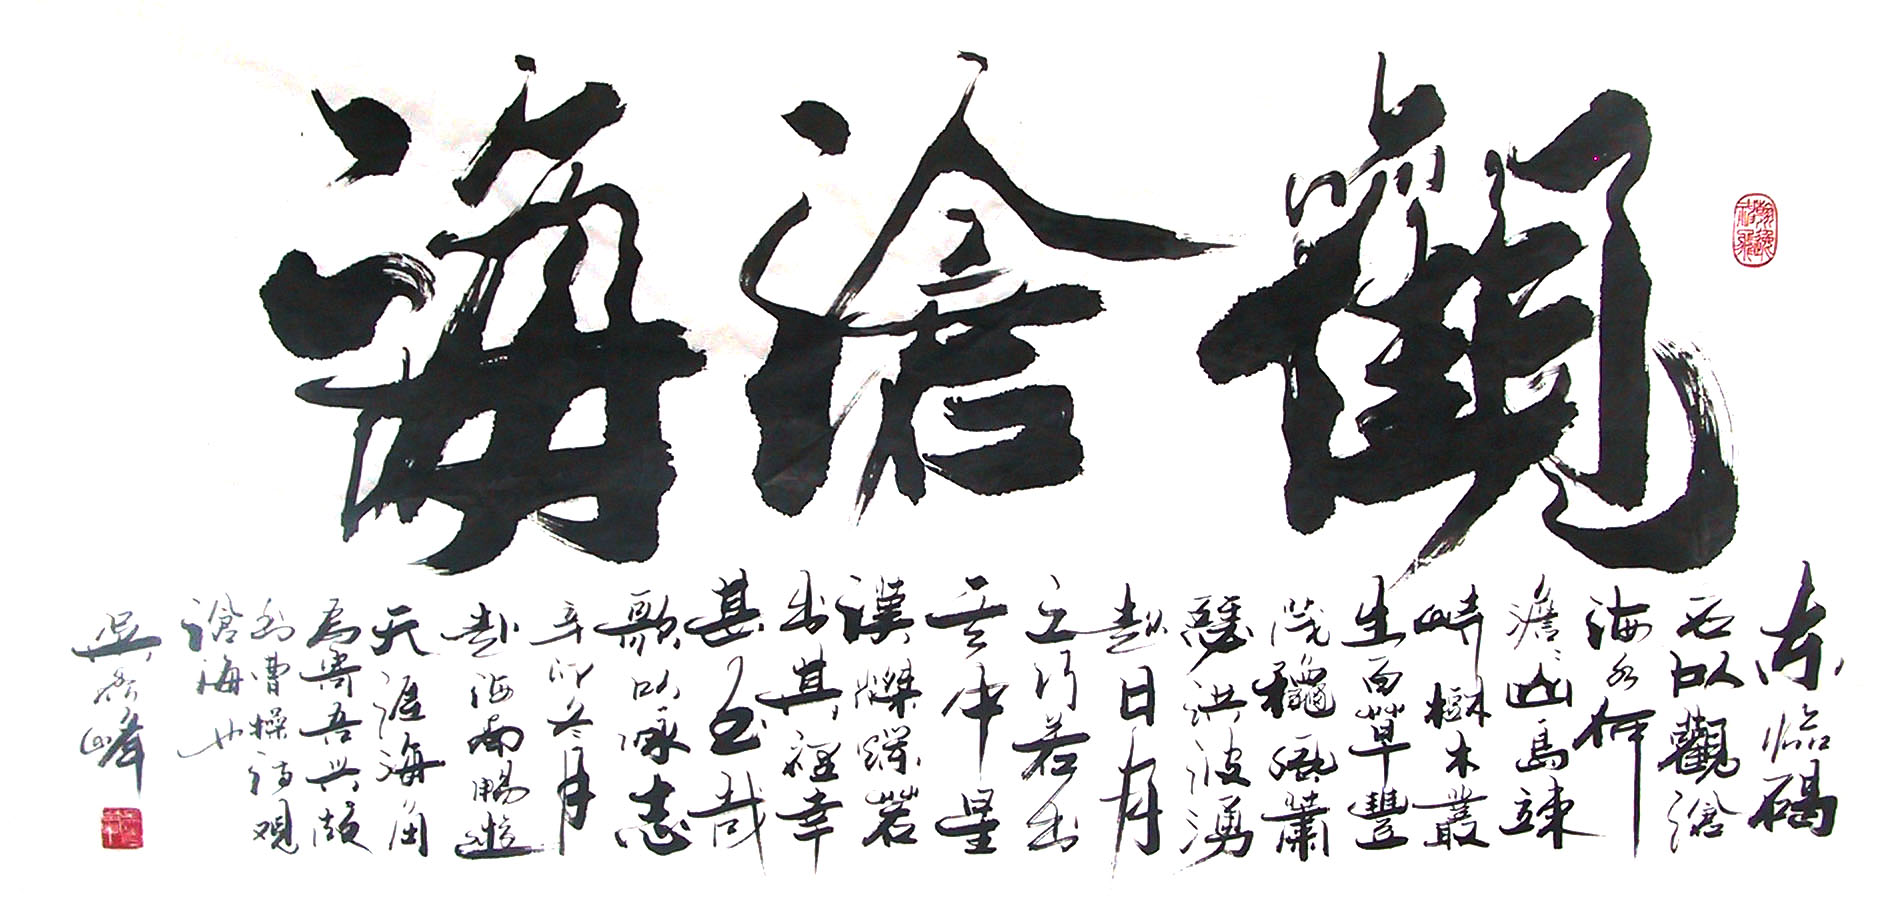 觀滄海
东臨碣
石以觀滄
海水何
澹澹山島竦
峙樹木叢
生百草豐
茂龝風蕭
瑟洪波湧
起日月
之行若出
其中星
漢燦爛若
出其裡幸
甚至哉
歌以咏志
辛卯冬月
赴海南暢遊
天涯海角
為寄吾兴故
书曹操诗观
滄海也
吴峰